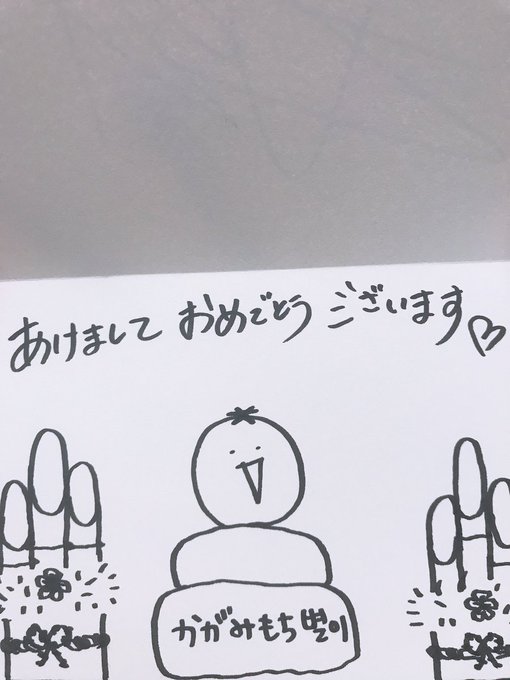 あけまして おめでとう ございます♡
かがみもち 별이